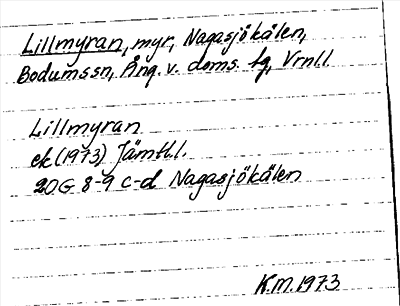 Lillmyran, myr, Nagasjökälen,
Bodumssn, Ång. v. doms. tg, Vrnll
Lillmyran
ek (1973) Jämtl.l.
20G 8-9 c-d Nagasjökälen
K.M. 1973